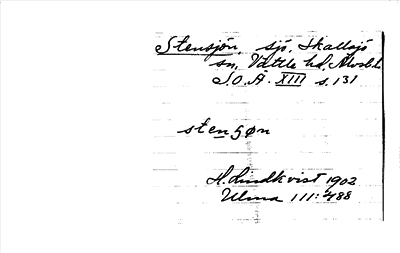 Stensjön, sjö, Skallsjö
sn, Vättle hd, Älvsb.l.
S.O.Ä. XIII s. 131
stenʒøn
H. Lindkvist 1902
Ulma 111:488